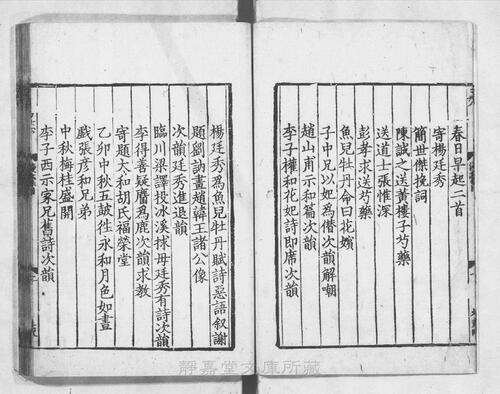 春日早起二首
寄楊廷秀
簡世傑挽詞
陳誠之送黄樓子芍藥
送道士張惟深
彭孝求送芍藥
魚兒牡丹命曰花嬪
子中兄以妃為僣次韻解嘲
趙山甫示和篇次韻
李子權和花妃詩即席次韻
楊廷秀為魚兒牡丹賦詩惡語叙謝
題劉訥畫趙韓王諸公像
次韻廷秀進退韻
臨川梁譯投氷溪捄母廷秀有詩次韻
李得善疑黶為鹿次韻求教
寄題太和胡氏福榮堂
乙卯中秋五詖徃永和月色如晝
戲張彦和兄弟
中秋梅桂盛開
李子西示家兄舊詩次韻
靜嘉堂文庫所藏